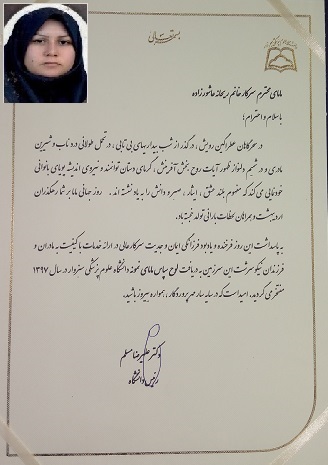 بسمه تعالی
مامای محترم سرکار خانم ریحانه عاشورزاده
با سلام و احترام؛
در سحرگاهان عطرآگین رویش، در گذر از شب بیداری‌های بی‌تابی، در تحمل طولانی درد ناب و شیرین
مادری و در تبسم دلنواز ظهور آیات روح بخش آفرینش، گرمای دستان توانمند و نیروی اندیشه پویای بانوانی
خودنمایی می کند که مفهوم بلند عشق، ایثار، صبر و دانش را به یاد نشانده اند. روز جهانی ماما بر شما رهگذران
اردیبهشت و همراهان لحظات بارانی تولد خجسته باد.
به پاسداشت این روز فرخنده و یادبود فرزانگی ایمان و جدیت سرکارعالی در ارائه خدمات با کیفیت به مادران و
فرزندان نیکو سرشت این سرزمین به دریافت لوح سپاس مامای نمونه دانشگاه علوم پزشکی سبزوار در سال ۱۳۹۷
مفتخر می گردید. امید است که در سایه سار مهر پروردگار، همواره پیروز باشید.
دکتر علیرضا مسلم
رئیس دانشگاه